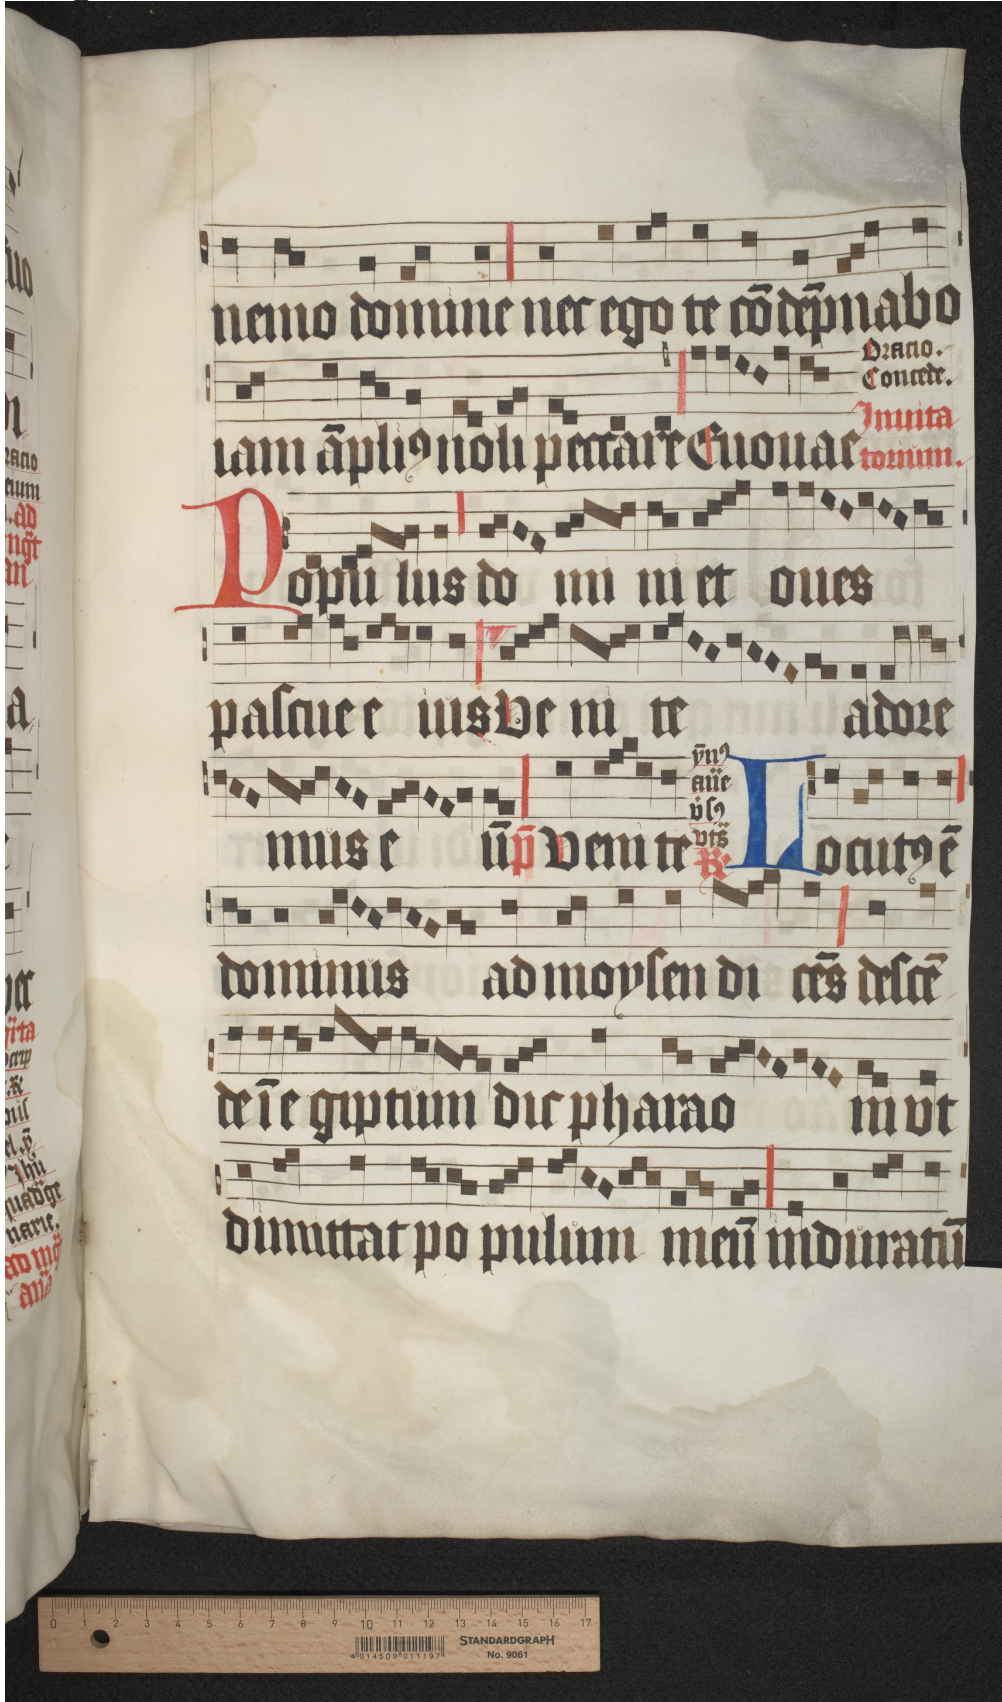 nemo domine nec ego te cōdēpnabo
Oracio.
Concede.
iam āpliꝰ noli peccare Euouae
Inuita
torium.
Populus do mi ni et oues
pascue e ius Ve ni te adore
mus e ū p̄ Venite
ẏmꝰ
aūe
v̇sꝰ
vts̄
R̄
Locutꝰ ē
dominus ad moysen di cēs descē
de ī e giptum dic pharao ni vt
dimittat po pulum meū induratū
0 1 2 3 4 5 6 7 8 9 10 11 12 13 14 15 16 17
4 014509 011197
STANDARDGRAPH
No. 9061